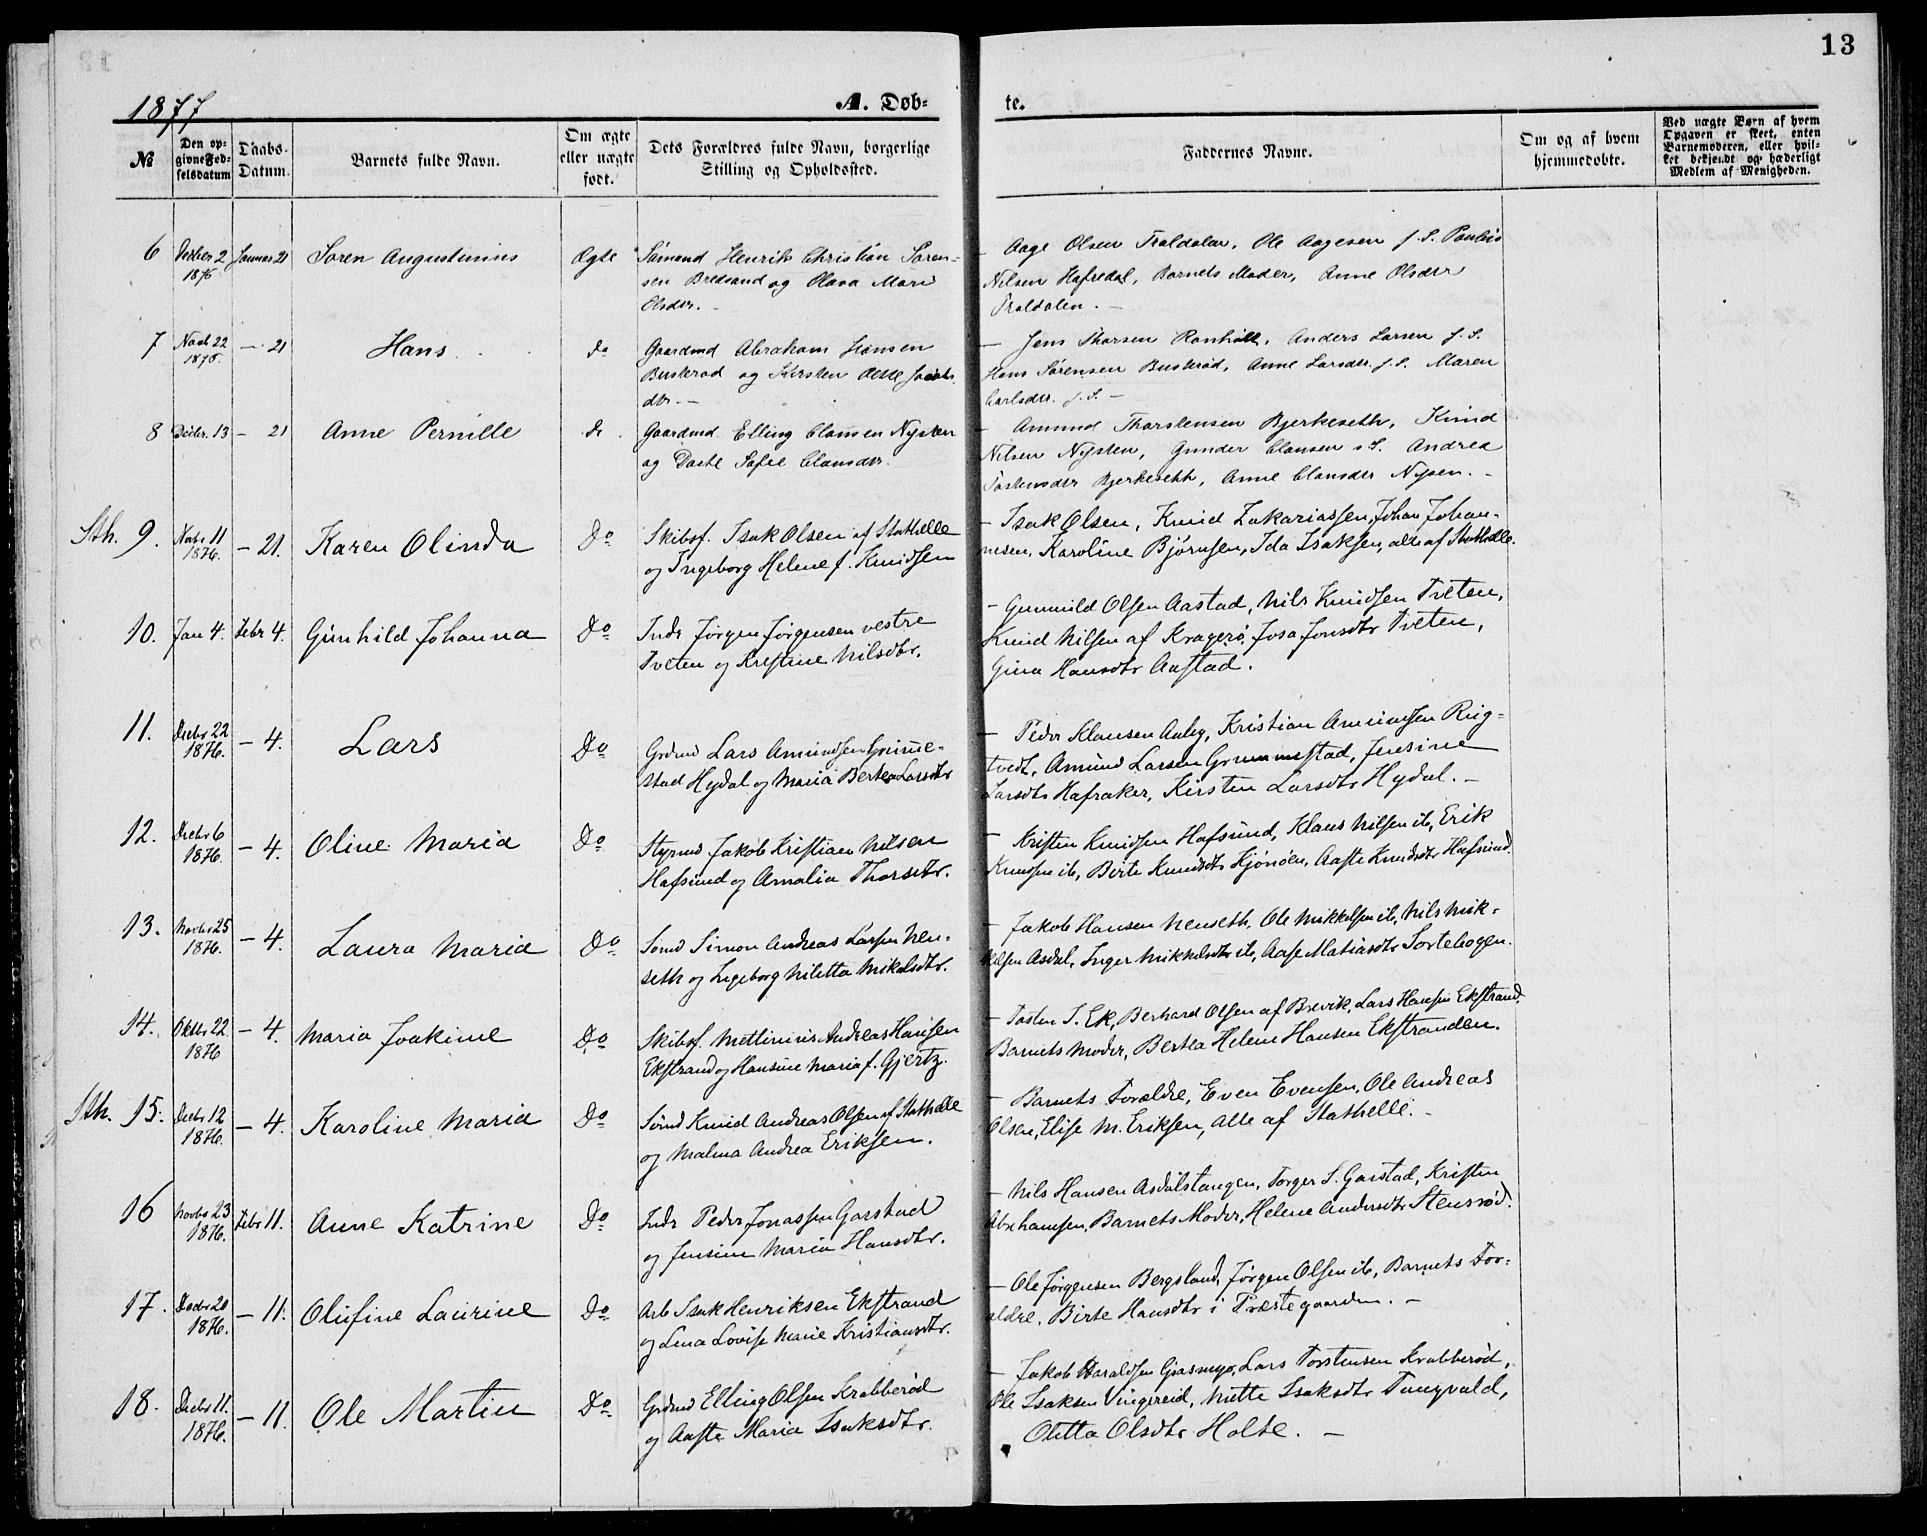 13
1877
A. Døb-
te.
№
Den op-
givne Fød-
selsdatum
Daabs-
Datum.
Barnets fulde Navn.
Om ægte
eller uægte
født.
Dets Forældres fulde Navn, borgerlige
Stilling og Opholdssted.
Faddernes Navne.
Om og af hvem
hjemmedøbte.
Ved uægte Børn af hvem
Opgaven er skeet, enten
Barnemoderen, eller hvil-
ket bekjendt og hæderligt
Medlem af Menigheden.
6
2
1876
Januar 21
Søren Augustinius
Ægte
Sømand Henrik Christian Søren-
sen Bredsand og Olava Marie
Olsdtr. -
- Aage Olsen Traldalen, Ole Aagesen f. S.
Nilsen Hafredal, Barnets Moder, Anne Olsdtr
Traldalen. -
7
22
1876.
- 21
Hans
do
Gaardmd Abraham Hansen
Buskrød og Kirsten
dtr. -
- Jens Thorsen Rønholt, Anders Larsen f. S.
Hans Sørensen Buskrød, Anne Larsdtr. f. S. Maren
Carlsdtr. f. S. -
8
Decbr. 13
- 21
Anne Pernille
do
Gaardmd. Elling Clausen Nysten
og Sofie Clausdtr.
- Amund Thorstensen Bjerkeseth, Knud
Nilsen Nysten, Gunder Clausen s S. Andrea
Tostensdtr Bjerkeseth, Anne Clausdtr Nysen. -
Sth. 9.
Novbr 11
1876.
- 21.
Karen Olinda
Do
Skibsf. Isak Olsen af Stathelle
og Ingeborg Helene f. Knudsen
- Isak Olsen, Knud Zakariassen, Johan Johan-
nesen, Karoline Bjørnsen, Ida Isaksen, alle af Stathelle.
10.
Jan 4.
Febr 4.
Gunhild Johanna
Do
Inds Jørgen Jørgensen vestre
Tveten og Kristine Nilsdtr.
- Gunnuld Olsen Aastad, Nils Knudsen Tveten,
Knud Nilsen af Kragerø, Josa Jonsdtr Tveten,
Gina Hansdtr Aastad.
11.
Decbr 22
1876.
- 4.
Lars
Do
Grdmd Lars Amundsen Grimme-
stad Hydal og Maria Bertea Larsdtr
- Peder Klausen Aaby, Kristian Amundsen Rug-
tvedt, Amund Larsen Grummestad, Jensine
Larsdtr Hafraker, Kirsten Larsdtr Hydal. -
12.
Decbr 6
1876.
- 4.
Oline Maria
Do
Styrmd Jakob Kristian Nilsen
Hafsund og Amalia Thorsdtr.
- Kristen Knudsen Hafsund, Klaus Nilsen ib, Erik
Knudsen ib, Birte Knudsdtr Kjønøen, Aaste Knudsdtr Hafsund.
13.
Novbr 25
1876.
- 4.
Laura Maria
Do
Sømd Simon Andreas Larsen Nen-
seth og Ingeborg Niletta Mikalsdtr.
- Jakob Hansen Nenseth, Ole Mikkelsen ib, Nils Mik-
kelsen Asdal, Inger Mikkelsdtr ib, Aase Matiasdtr Sortebogen.
14.
Oktbr 22
1876
- 4.
Maria Joakime
Do
Skibsf. Mettinius Andreas Hansen
Ekstrand og Hansine Maria f. Gjertz.
- Tosten T. Ek, Berhard Olsen af Brevik, Lars Hansen Ekstrand
Barnets Moder, Bertea Helene Hansen Ekstranden.
Sth. 15.
Decbr 12
1876.
- 4.
Karoline Maria
Do
Sømd Knud Andreas Olsen af Stathelle
og Malina Andrea Eriksen.
- Barnets Forældre, Even Evensen, Ole Andreas
Olsen, Elise M. Eriksen, Alle af Stathelle. -
16
Novbr 23
1876.
Febr 11.
Anne Katrine
Do
Inds Peder Jonassen Garstad
og Jensine Maria Hansdtr.
- Nils Hansen Asdalstangen, Torger S. Garstad, Kristen
Abrahamsen, Barnets Moder, Helene Andersdtr Stensrød.
17.
Decbr 20
1876.
- 11.
Olufine Laurine
Do
Arb Isak Henriksen Ekstrand
og Lina Lovise Marie Kristiansdtr.
- Ole Jørgensen Bergsland, Jørgen Olsen ib, Barnets For-
ældre, Birte Hansdtr i Præstegaarden. -
18.
Decbr 11.
1876.
- 11.
Ole Martin
Do
Grdmd Elling Olsen Krabberød
og Aaste Maria Isaksdtr.
- Jakob Haraldsen Grasmyr, Lars Torstensen Krabberød,
Ole Isaksen Vingereid, Mette Isaksdtr Tangvald,
Oletta Olsdtr Holte. -